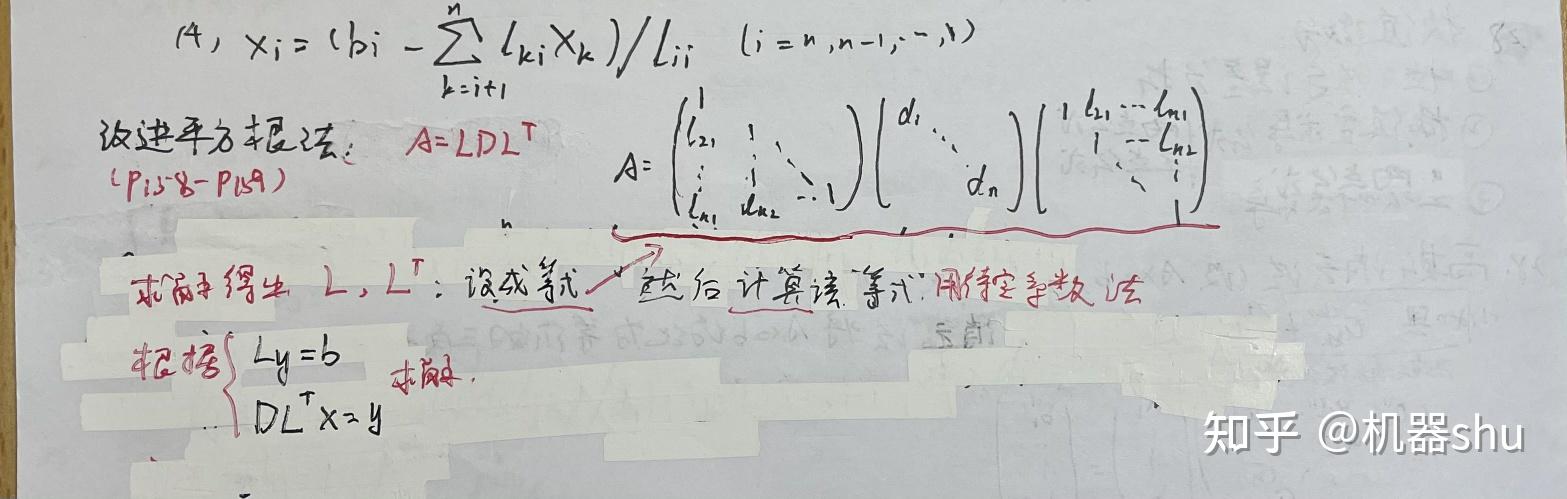 (4) xi = (bi - ∑_{k=i+1}^{n} l_{ki} x_k) / l_{ii} (i = n, n-1, ..., 1)
改进平方根法: A = LDL^T
(P158-P159)
A = (1 l_{21} 1 ⋮ ⋮ ⋱ l_{n1} l_{n2} ... 1) (d_1 ⋱ d_n) (1 l_{21} ... l_{n1} 1 ... l_{n2} ⋱ ⋮ 1)
求解得出 L, L^T: 设成等式 然后计算该等式 用待定系数法
根据 { Ly = b
DL^T x = y 求解.
知乎 @机器shu